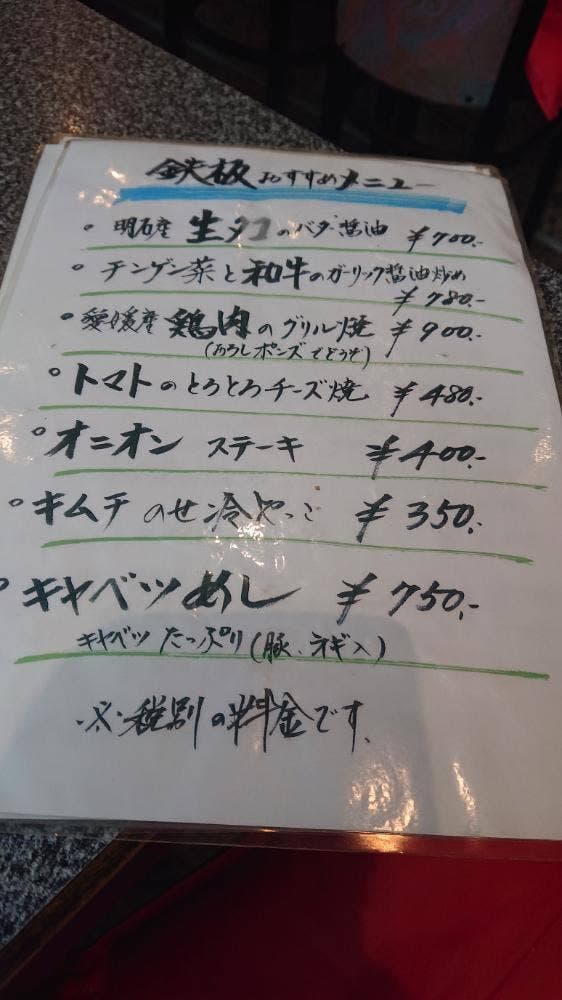 鉄板おすすめメニュー
・明石産 生タコのバター醤油 ¥700.-
・チンゲン菜と和牛のガーリック醤油炒め
¥780.-
・愛媛産 鶏肉のグリル焼 ¥900.-
(おろしポンズでどうぞ)
・トマトのとろとろチーズ焼 ¥480.-
・オニオン ステーキ ¥400.-
・キムチ のせ 冷やっこ ¥350.-
・キャベツめし ¥750.-
キャベツ たっぷり(豚、ネギ入)
※税別の料金です。